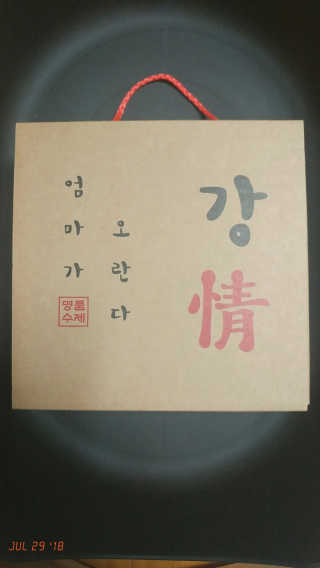 강情
엄마가
오란다
명품
수제
JUL 29 '18